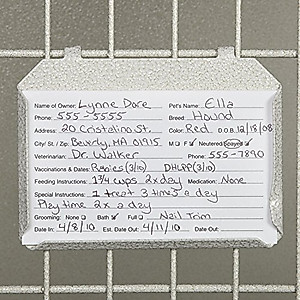 Name of Owner: Lynne Dore Pet's Name: Ella
Phone: 555-5555 Breed Hound
Address: 20 Cristalino St. Color: Red D.O.B. 12/18/08
City/ St. / Zip: Beverly, MA 01915 M □ F ☑ Neutered/Spayed ☑
Veterinarian: Dr. Walker Phone: 555-7890
Vaccinations & Dates: Rabies (3/10) DHLPP (3/10)
Feeding Instructions: 1 3/4 cups 2x day Medication: None
Special Instructions: 1 treat 3 times a day
Play time 2x a day
Grooming: None □ Bath ☑ Full □ Nail Trim
Date In: 4/8/10 Est. Date Out: 4/11/10 Date Out: